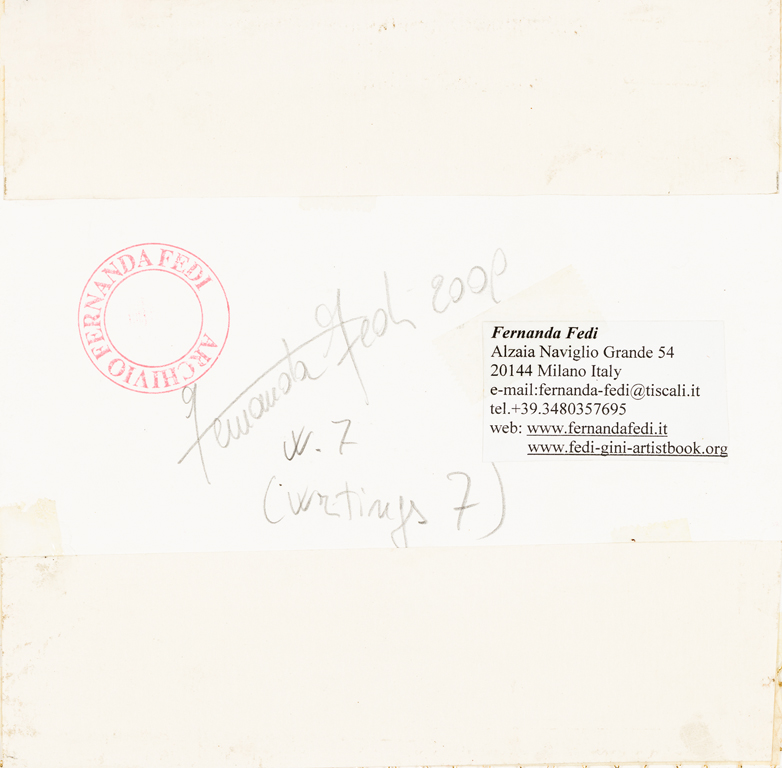 ARCHIVIO FERNANDA FEDI
Fernanda Fedi
W. 7
(Writings 7)
Fernanda Fedi
Alzaia Naviglio Grande 54
20144 Milano Italy
e-mail:fernanda-fedi@tiscali.it
tel.+39.3480357695
web: www.fernandafedi.it
www.fedi-gini-artistbook.org